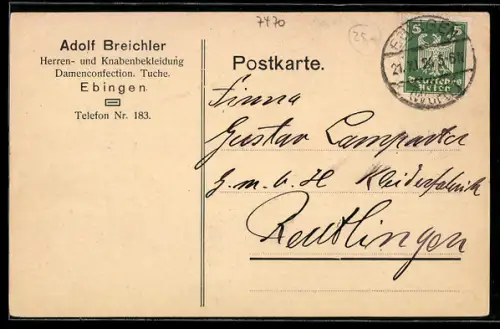 7470
25.-
Adolf Breichler
Herren- und Knabenbekleidung
Damenconfection. Tuche.
Ebingen
Telefon Nr. 183.
Postkarte.
5 5
Deutsches
Reich
Firma
Gustav Lamparter
G.m.b.H Kleiderfabrik
Reutlingen